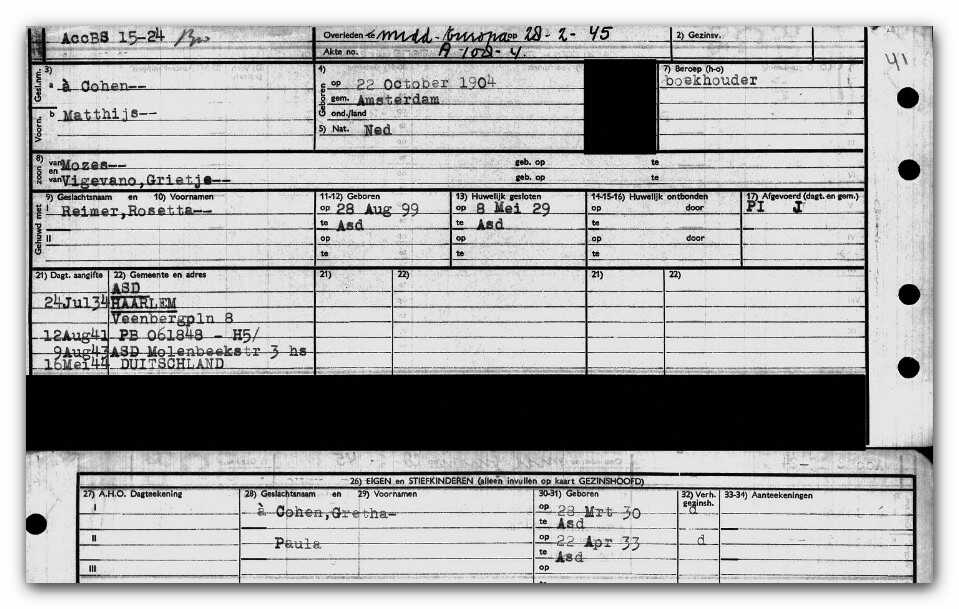 AccBS 15-24
Overleden te midd-Europa op 28-2-45
Akte no. A 108-4.
2) Gezinsv.
41
Geslnm.
3)
a à Cohen--
Voorn.
b Matthijs--
4)
Geboren
op 22 October 1904
gem. Amsterdam
ond./land
5) Nat. Ned
7) Beroep (h-o)
boekhouder
8)
zoon
van Mozes-- geb. op te
en
van Vigevano,Grietje-- geb. op te
Gehuwd met
9) Geslachtsnaam en 10) Voornamen
I Reimer,Rosetta--
II
11-12) Geboren
op 28 Aug 99
te Asd
op
te
13) Huwelijk gesloten
op 8 Mei 29
te Asd
op
te
14-15-16) Huwelijk ontbonden
op door
te
op door
te
17) Afgevoerd (dagt. en gem.)
PI J
21) Dagt. aangifte 22) Gemeente en adres 21) 22) 21) 22)
ASD
24Jul34 HAARLEM
Veenbergpln 8
12Aug41 PB 061848 - H5/
9Aug43 ASD Molenbeekstr 3 hs
16Mei44 DUITSCHLAND
26) EIGEN en STIEFKINDEREN (alleen invullen op kaart GEZINSHOOFD)
27) A.H.O. Dagteekening 28) Geslachtsnaam en 29) Voornamen 30-31) Geboren 32) Verh. gezinsh. 33-34) Aanteekeningen
I à Cohen,Gretha- op 28 Mrt 30 d
te Asd
II Paula op 22 Apr 33 d
te Asd
III op